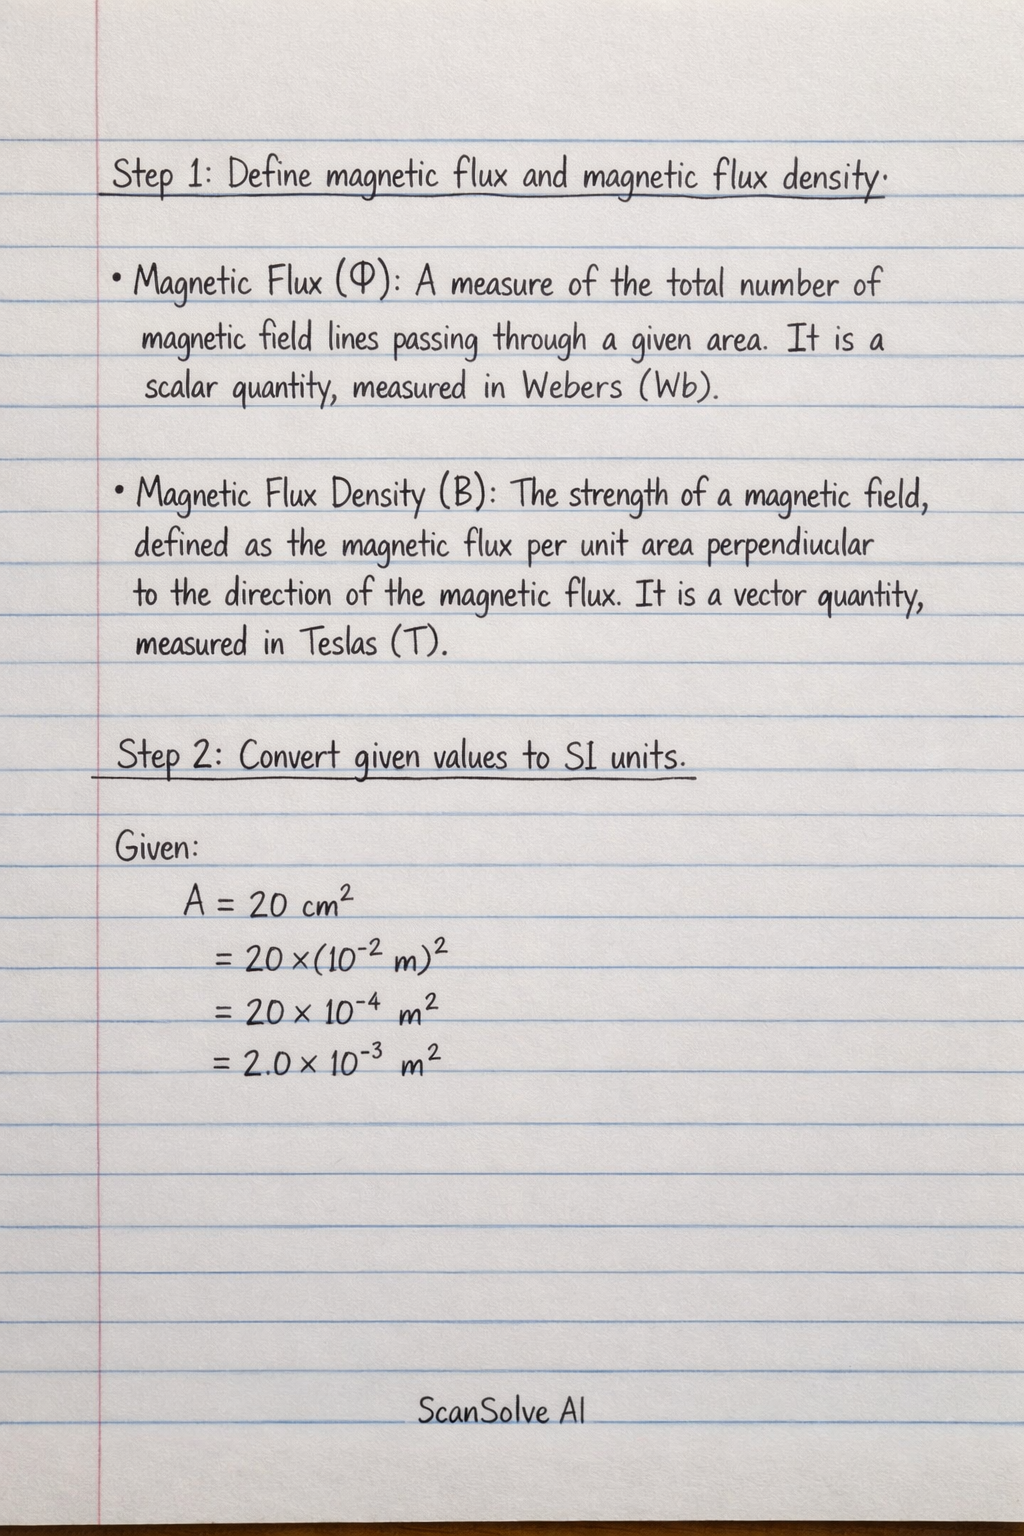 Step 1: Define magnetic flux and magnetic flux density.
• Magnetic Flux (Φ): A measure of the total number of
magnetic field lines passing through a given area. It is a
scalar quantity, measured in Webers (Wb).
• Magnetic Flux Density (B): The strength of a magnetic field,
defined as the magnetic flux per unit area perpendiucular
to the direction of the magnetic flux. It is a vector quantity,
measured in Teslas (T).
Step 2: Convert given values to SI units.
Given:
A = 20 cm²
= 20 ×(10⁻² m)²
= 20 × 10⁻⁴ m²
= 2.0 × 10⁻³ m²
ScanSolve AI